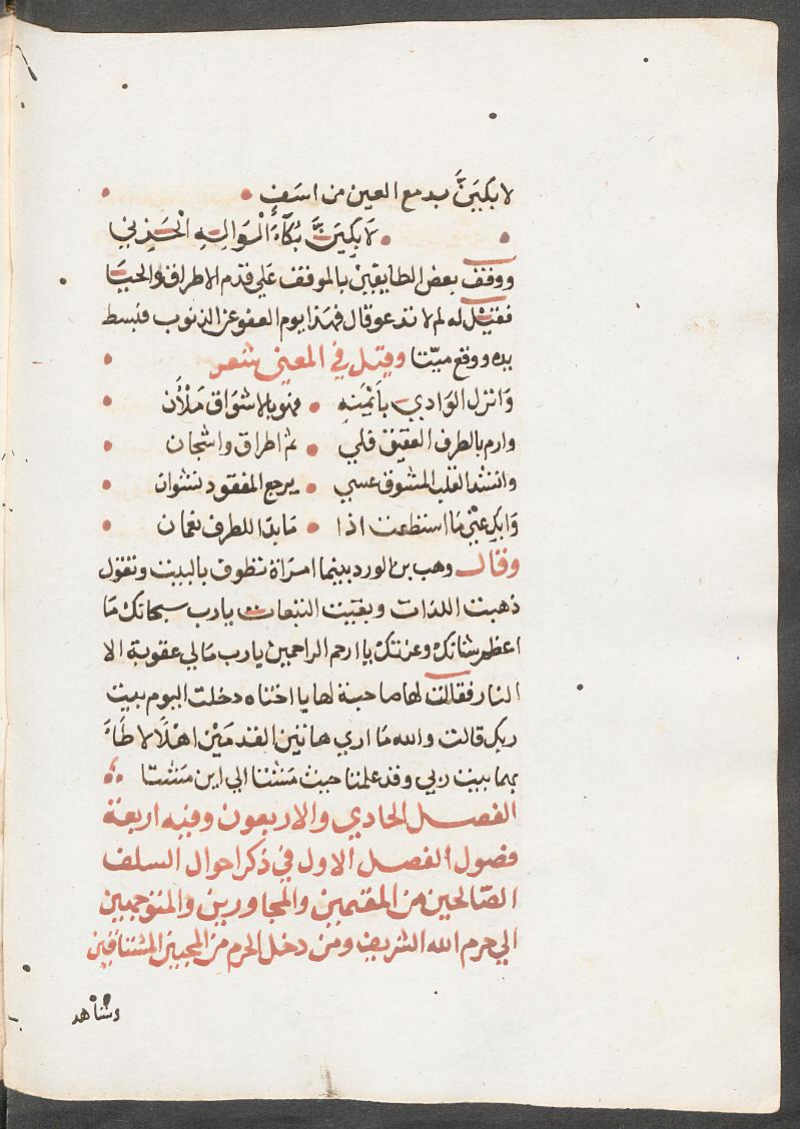 لابكيَنَّ بدمع العين من اسَفٍ
لَابكِينَّ بُكَآءَ الْوَالِهِ الْحَزِني
ووقف بعض الطايفين بالموقف علي قدم الاطراق والحيَا
فقيل له لم لا تدعو قال فهذا يوم العفو عن الذنوب فبسط
يده ووقع ميّتا وقيل في المعني شعر
وَانزل الوَادي بايْمَنِه فهو بالاشوَاق مَلْأَن
وارم بالطرف العقيق فلي ثم اطراق واشجان
وانشد القلب المشوق عسي يرجع المفقود نشوان
وَابكِ عنّي مَا استطعت اذا مَا بدا للطرف نعمان
وقال وهب بن الورد بينما امرَاة تطوف بالبيت وتقول
ذهبت اللذات وبقيت التبعات يارب سبحانك مَا
اعظم شانك وعزتك يا ارحم الراحمين يارب مَا لي عقوبة الا
النار فقالت لها صاحبة لها يا اختاه دخلت اليوم بيت
ربك قالت والله مَا اري هاتين القدمَيْن اهْلًا لاطَاءَ
بهما بيت ربي وقد علمنا حيث مَشتا الي اين مَشتا
الفصل الحادي والاربعون وفيه اربعة
فصول الفصل الاول في ذكر احوال السلف
الصّالحين من المقيمين والمجاورين والمتوجهين
الي حرم الله الشريف ومن دخل الحرم من المحبين المشتاقين
وشاهد